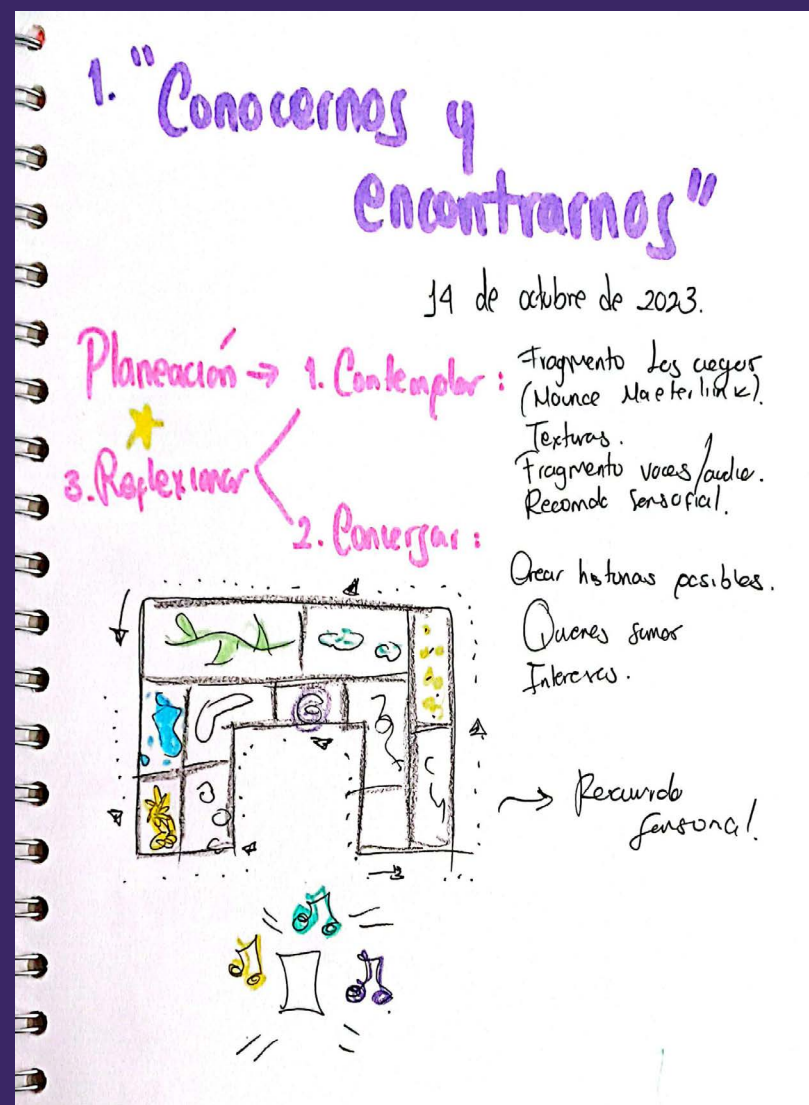 1. "Conocernos y
encontrarnos"
14 de octubre de 2023.
Planeación → 1. Contemplar :
Fragmento Los ciegos
(Maurice Maeterlink).
Texturas.
Fragmento voces/audio.
Recorrido sensorial.
3. Reflexionar
2. Conversar :
Crear historias posibles.
Quienes somos
Intereses.
→ Recorrido
sensorial.